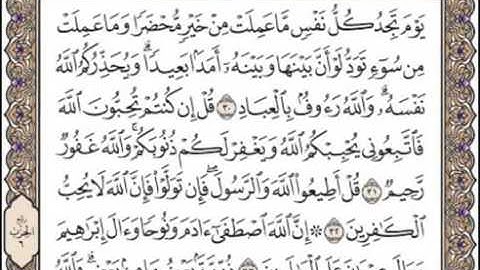 يَوْمَ تَجِدُ كُلُّ نَفْسٍ مَّا عَمِلَتْ مِنْ خَيْرٍ مُّحْضَرًا وَمَا عَمِلَتْ
مِن سُوٓءٍ تَوَدُّ لَوْ أَنَّ بَيْنَهَا وَبَيْنَهُۥٓ أَمَدًۢا بَعِيدًا ۗ وَيُحَذِّرُكُمُ ٱللَّهُ
نَفْسَهُۥ ۗ وَٱللَّهُ رَءُوفٌۢ بِٱلْعِبَادِ ٣٠ قُلْ إِن كُنتُمْ تُحِبُّونَ ٱللَّهَ
فَٱتَّبِعُونِى يُحْبِبْكُمُ ٱللَّهُ وَيَغْفِرْ لَكُمْ ذُنُوبَكُمْ ۗ وَٱللَّهُ غَفُورٌ
رَّحِيمٌ ٣١ قُلْ أَطِيعُوا۟ ٱللَّهَ وَٱلرَّسُولَ ۖ فَإِن تَوَلَّوْا۟ فَإِنَّ ٱللَّهَ لَا يُحِبُّ
ٱلْكَٰفِرِينَ ٣٢ ۞ إِنَّ ٱللَّهَ ٱصْطَفَىٰٓ ءَادَمَ وَنُوحًا وَءَالَ إِبْرَٰهِيمَ
وَءَالَ عِمْرَٰنَ عَلَى ٱلْعَٰلَمِينَ ٣٣ ذُرِّيَّةًۢ بَعْضُهَا مِنۢ بَعْضٍ ۗ وَٱللَّهُ
الحزب
٦